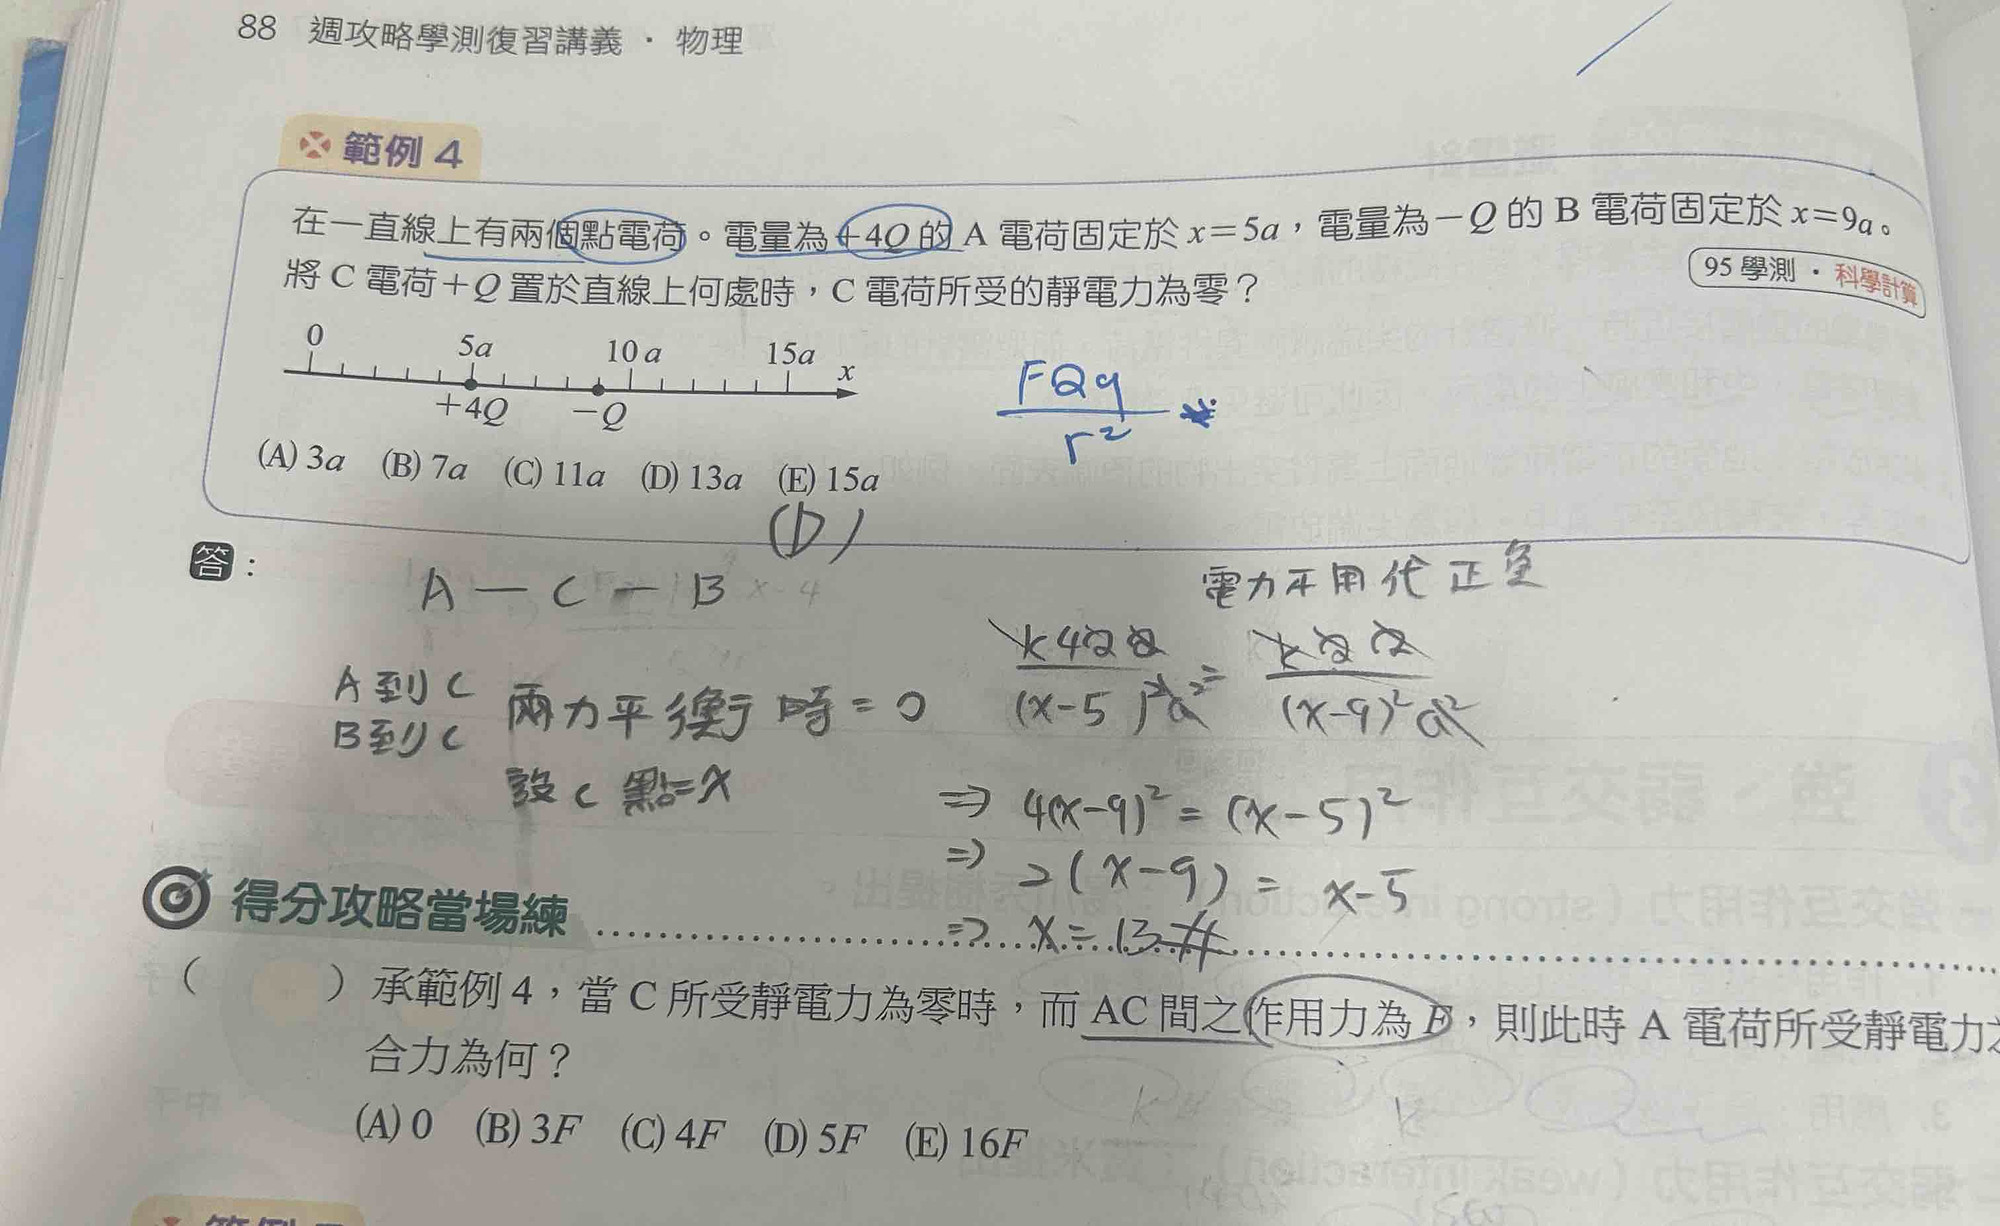 88 週攻略學測復習講義 · 物理
範例 4
在一直線上有兩個點電荷。電量為+4Q的 A 電荷固定於 x=5a,電量為-Q的 B 電荷固定於 x=9a。
將 C 電荷+Q 置於直線上何處時,C 電荷所受的靜電力為零?
95 學測 · 科學計算
0 5a 10a 15a x
+4Q -Q
FQq
r²
(A) 3a (B) 7a (C) 11a (D) 13a (E) 15a
(D)
答:
A — C — B
電力不用代正負
A到C
B到C
兩力平衡時=0
設C點=x
k4QQ/(x-5)²a² = kQQ/(x-9)²a²
⇒ 4(x-9)² = (x-5)²
⇒ 2(x-9) = x-5
⇒ x=13 #
得分攻略當場練
( ) 承範例 4,當 C 所受靜電力為零時,而 AC 間之作用力為 F,則此時 A 電荷所受靜電力
合力為何?
(A) 0 (B) 3F (C) 4F (D) 5F (E) 16F